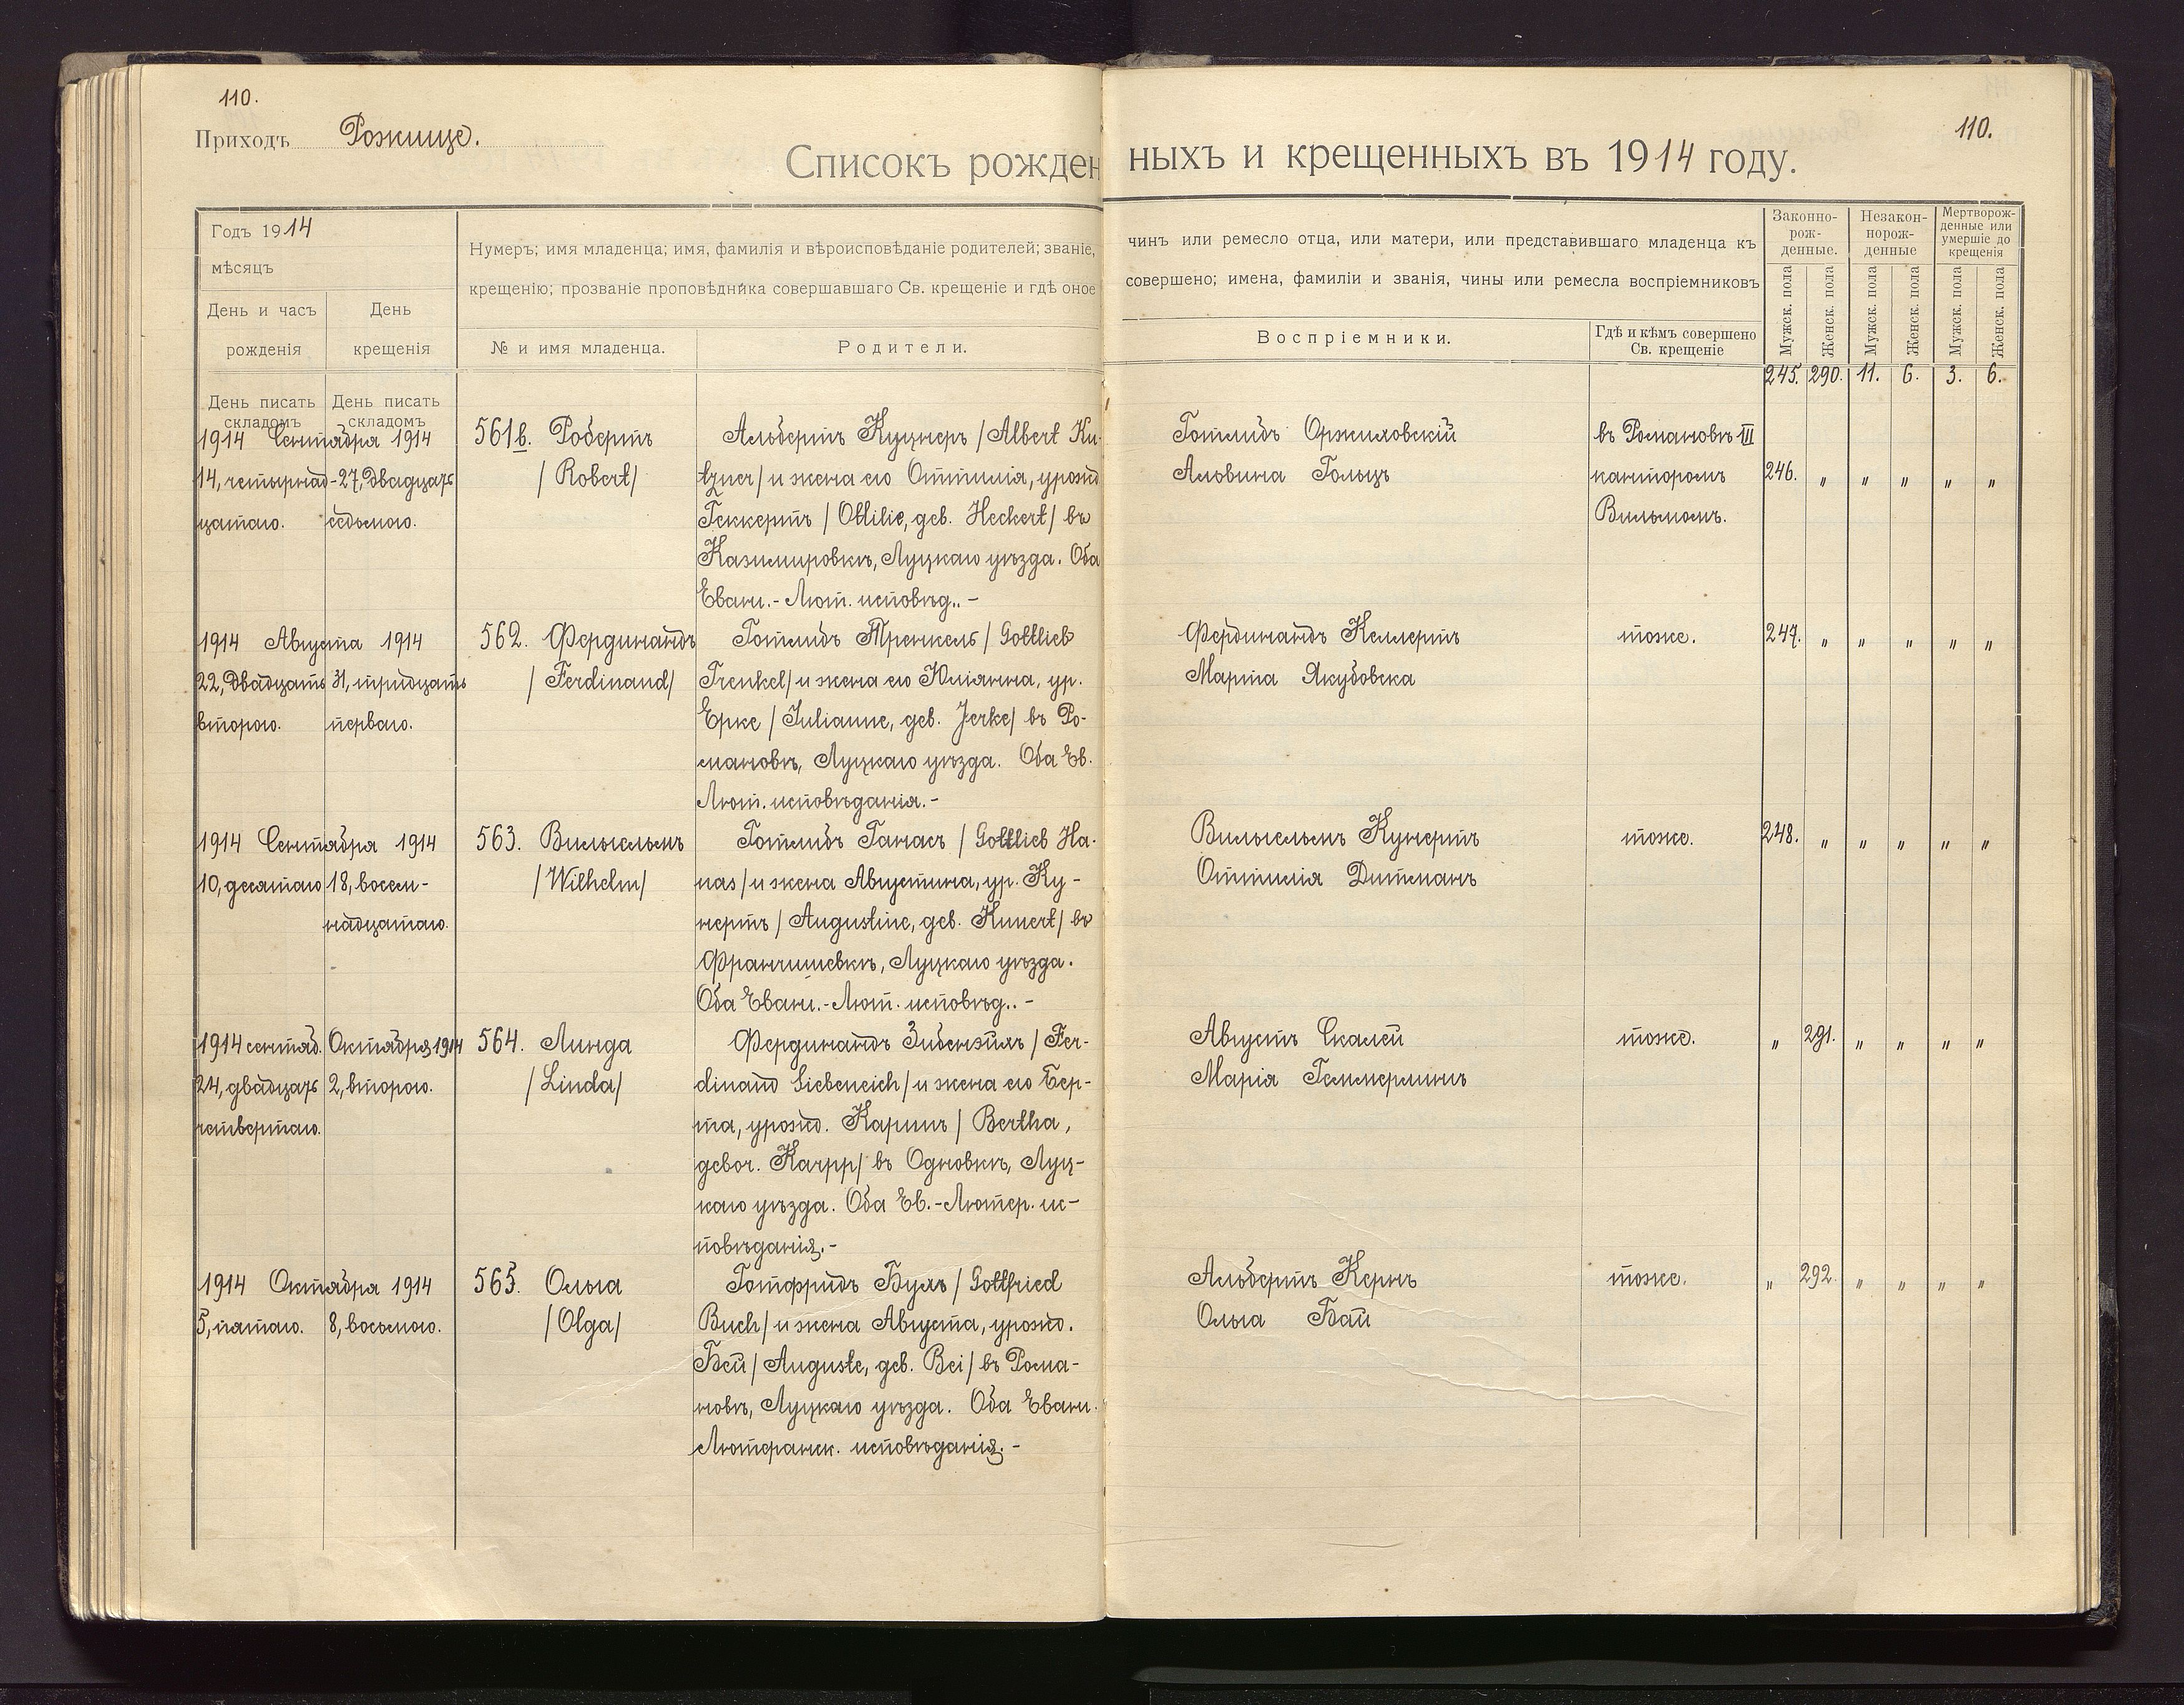 110.
110.
Приходъ Рожище.
Списокъ рожденныхъ и крещенныхъ въ 1914 году.
Годъ 1914
мѣсяцъ
День и часъ рожденія
День крещенія
День писать складомъ
День писать складомъ
Нумеръ; имя младенца; имя, фамилія и вѣроисповѣданіе родителей; званіе, чинъ или ремесло отца, или матери, или представившаго младенца къ
крещенію; прозваніе проповѣдника совершавшаго Св. крещеніе и гдѣ оное совершено; имена, фамиліи и званія, чины или ремесла воспріемниковъ
№ и имя младенца.
Родители.
Воспріемники.
Гдѣ и кѣмъ совершено
Св. крещеніе
Законно-
рож-
денные.
Незакон-
норож-
денные
Мертворож-
денные или
умершіе до
крещенія
Мужск. пола
Женск. пола
Мужск. пола
Женск. пола
Мужск. пола
Женск. пола
245. 290. 11. 6. 3. 6.
1914 Сентября 1914
14, четырнад-
цатаго.
27, двадцать
седьмого.
561b. Робертъ
/Robert/
Альбертъ Куцнеръ /Albert Ku-
tzner/ и жена его Оттилія, урожд
Геккертъ /Ottilie, geb. Heckert/ въ
Казимировкѣ, Луцкаго уѣзда. Оба
Еванг.-Лют. исповѣд..-
Готлибъ Оржиловскій
Альвина Гольцъ
въ Романовкѣ III
канторомъ
Вильмомъ.
246. „ „ „ „ „
1914 Августа 1914
22, двадцать
второго.
31, тридцать
перваго.
562. Фердинандъ
/Ferdinand/
Готлибъ Тренкель /Gottlieb
Trenkel/ и жена его Юліянна, ур.
Ерке /Julianne, geb. Jerke/ въ Ро-
мановкѣ, Луцкаго уѣзда. Оба Ев.
Лют. исповѣданія.-
Фердинандъ Келлертъ
Марта Якубовска
тоже.
247. „ „ „ „ „
1914 Сентября 1914
10, десятаго
18, восем-
надцатаго.
563. Вильгельмъ
/Wilhelm/
Готлибъ Ганасъ /Gottlieb Ha-
nas/ и жена Августина, ур. Ку-
нертъ /Augustine, geb. Kunert/ въ
Франчишевкѣ, Луцкаго уѣзда.
Оба Еванг.-Лют. исповѣд..-
Вильгельмъ Кунертъ
Оттилія Дитманъ
тоже.
248. „ „ „ „ „
1914 сентяб.
24, двадцать
четвертаго.
Октября 1914
2, второго.
564. Линда
/Linda/
Фердинандъ Зибенэйхъ /Fer-
dinand Siebeneich/ и жена его Бер-
та, урожд. Карппъ /Bertha,
gebor. Karpp/ въ Одновкѣ, Луц-
каго уѣзда. Оба Ев.-Лютер. ис-
повѣданія.-
Августъ Скалей
Марія Геммерлингъ
тоже.
„ 291. „ „ „ „
1914 Октября 1914
5, пятаго.
8, восьмого.
565. Ольга
/Olga/
Готфридъ Бухъ /Gottfried
Buch/ и жена Августа, урожд.
Бей /Auguste, geb. Bei/ въ Рома-
новкѣ, Луцкаго уѣзда. Оба Еванг.
Лютеранск. исповѣданія.-
Альбертъ Кернъ
Ольга Бай
тоже.
„ 292. „ „ „ „